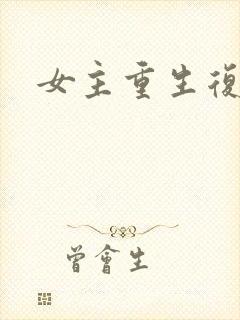 女主重生復
曾會生